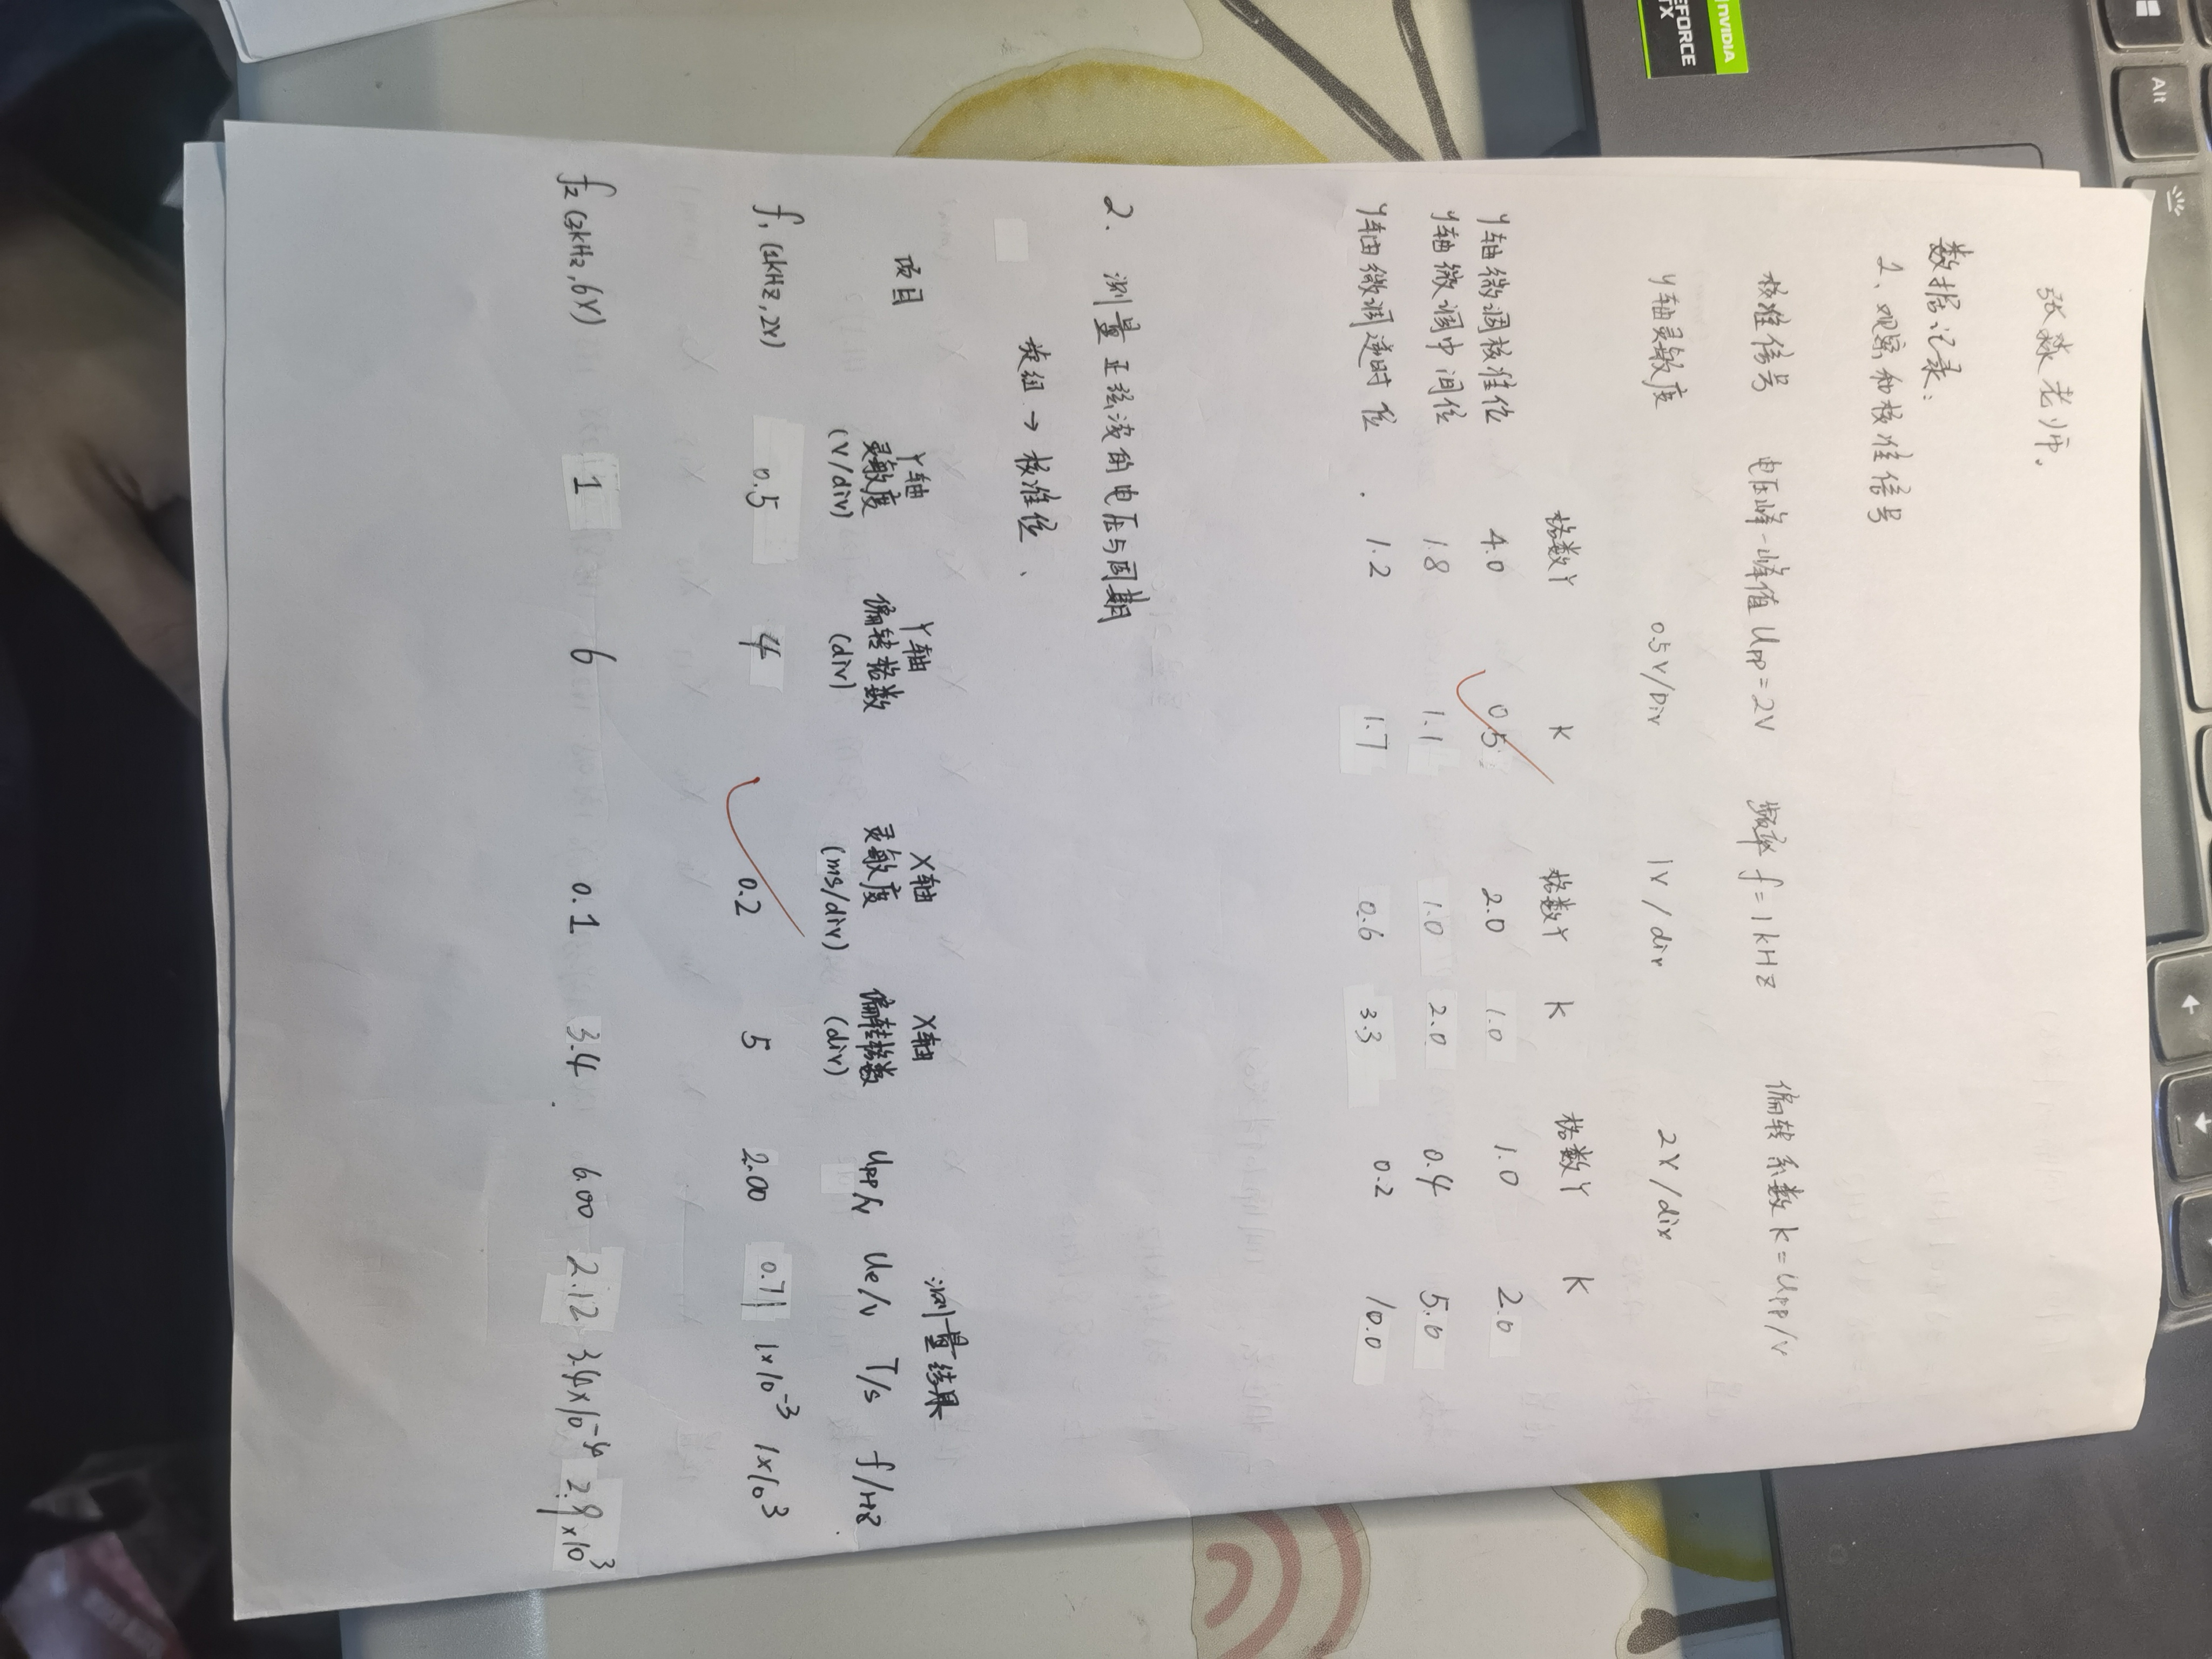 Alt
张淼老师.
数据记录:
1、观察和核准信号
核准信号 电压峰-峰值 UPP=2V 频率 f=1kHz 偏转系数 K=UPP/V
Y轴灵敏度 0.5V/Div 1V/div 2V/div
格数Y K 格数Y K 格数Y K
Y轴微调核准位 4.0 0.5 2.0 1.0 1.0 2.0
Y轴微调中间位 1.8 1.1 1.0 2.0 0.4 5.0
Y轴微调逆时位 1.2 1.7 0.6 3.3 0.2 10.0
2. 测量正弦波的电压与周期
旋钮→核准位、
测量结果
项目 Y轴灵敏度(V/div) Y轴偏转格数(div) X轴灵敏度(ms/div) X轴偏转格数(div) UPP/V Ue/V T/s f/Hz
f1(1kHz,2V) 0.5 4 0.2 5 2.00 0.71 1×10^-3 1×10^3
f2(3kHz,6V) 1 6 0.1 3.4 6.00 2.12 3.4×10^-4 2.9×10^3
NVIDIA
EFORCE
TX